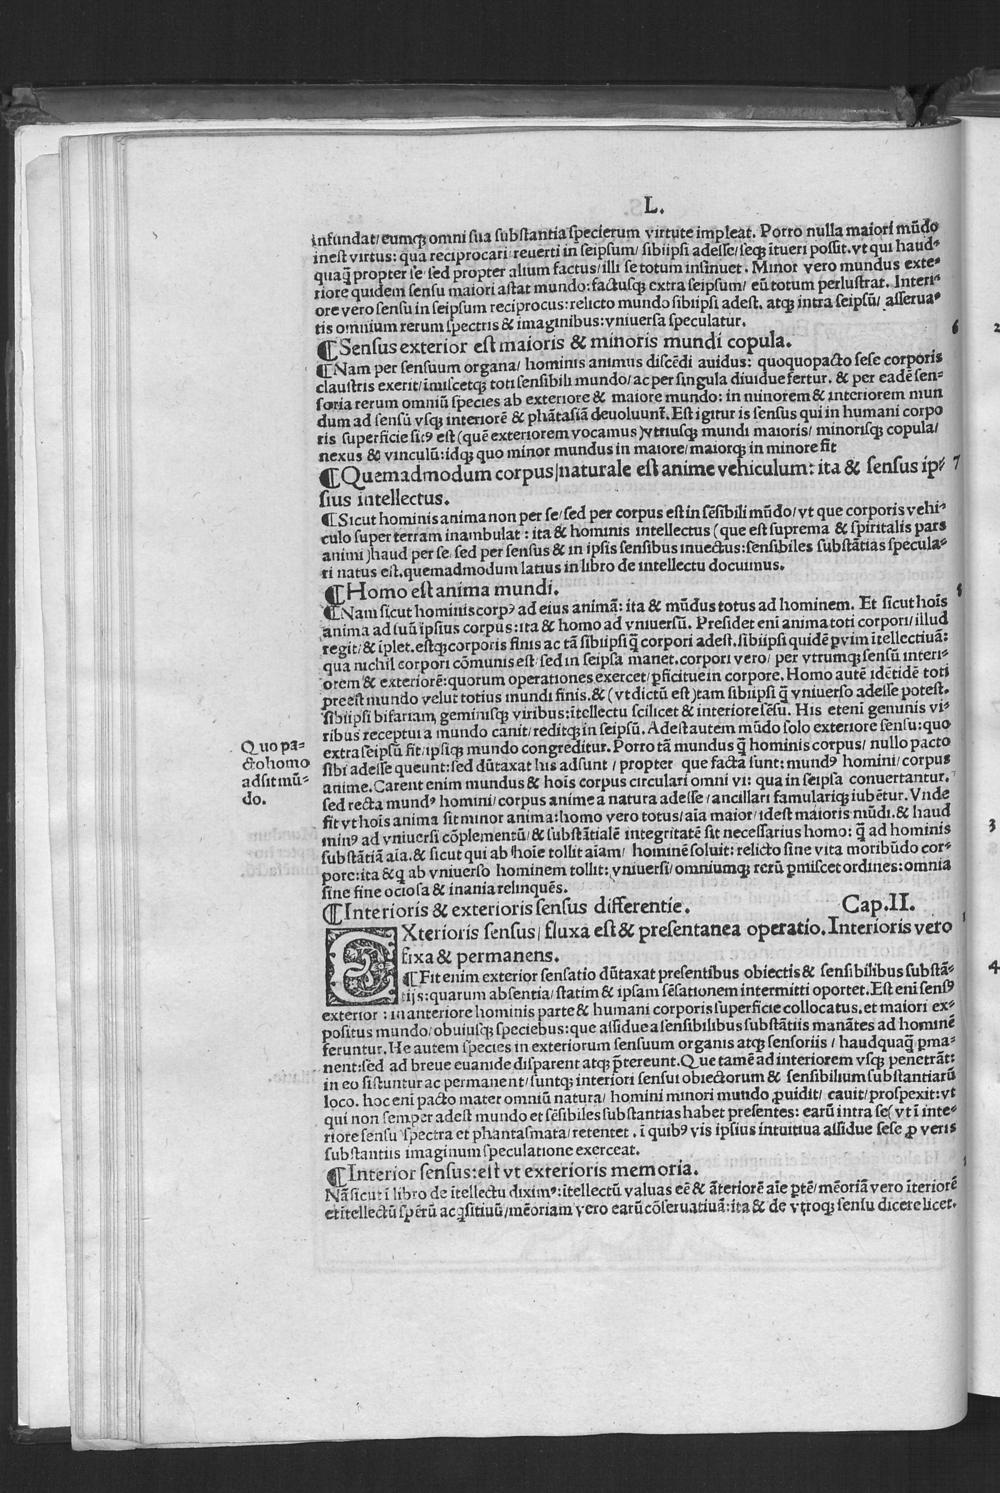 L.
infundat/eumqꝫ omni sua substantia specierum virtute impleat. Porro nulla maiori mūdo
inest virtus: qua reciprocari/reuerti in seipsum/sibiipsi adesse/seqꝫ ītueri possit. vt qui haud⸗
quaq̄ propter se/sed propter alium factus/illi se totum insinuet. Minor vero mundus exte⸗
riore quidem sensu maiori astat mundo: factusqꝫ extra seipsum/ eū totum perlustrat. Interi⸗
ore vero sensu in seipsum reciprocus: relicto mundo sibiipsi adest. atqꝫ intra seipsū/ asserua⸗
tis omnium rerum spectris & imaginibus: vniuersa speculatur.
¶Sensus exterior est maioris & minoris mundi copula. 6
¶Nam per sensuum organa/ hominis animus discēdi auidus: quoquopacto sese corporis
claustris exerit/īmiscetqꝫ toti sensibili mundo/ac per singula diuidue fertur. & per eadē sen⸗
soria rerum omniū species ab exteriore & maiore mundo: in minorem & interiorem mun
dum ad sensū vsqꝫ interiorē & phātasiā deuoluunt̄. Est igitur is sensus qui in humani corpo
ris superficie sitꝰ est (quē exteriorem vocamus) vtriusqꝫ mundi maioris/ minorisqꝫ copula/
nexus & vinculū: idqꝫ quo minor mundus in maiore/maiorqꝫ in minore fit
¶Quemadmodum corpus/naturale est anime vehiculum: ita & sensus ip⸗ 7
sius intellectus.
¶Sicut hominis anima non per se/sed per corpus est in sēsibili mūdo/vt que corporis vehi⸗
culo super terram inambulat: ita & hominis intellectus (que est suprema & spiritalis pars
animi) haud per se. sed per sensus & in ipsis sensibus inuectus: sensibiles substātias specula⸗
ri natus est. quemadmodum latius in libro de intellectu docuimus.
¶Homo est anima mundi. 8
¶Nam sicut hominis corpꝰ ad eius animā: ita & mūdus totus ad hominem. Et sicut hoīs
anima ad suū ipsius corpus: ita & homo ad vniuersū. Presidet eni anima toti corpori/illud
regit/& īplet. estqꝫ corporis finis ac tā sibiipsi q̄ corpori adest. sibiipsi quidē ꝑ vim ītellectiuā:
qua nichil corpori cōmunis est/sed in seipsa manet. corpori vero/ per vtrumqꝫ sensū interi⸗
orem & exteriorē: quorum operationes exercet/ꝑficitue in corpore. Homo autē idētidē toti
preest mundo velut totius mundi finis. & (vt dictū est) tam sibiipsi q̄ vniuerso adesse potest.
sibiipsi bifariam geminisqꝫ viribus: ītellectu scilicet & interiore sēsu. His eteni geminis vi⸗
ribus receptui a mundo canit/reditqꝫ in seipsū. Adest autem mūdo solo exteriore sensu: quo
extra seipsū fit/ipsiqꝫ mundo congreditur. Porro tā mundus q̄ hominis corpus/ nullo pacto
sibi adesse queunt: sed dūtaxat his adsunt/ propter que facta sunt: mundꝰ homini/corpus
anime. Carent enim mundus & hoīs corpus circulari omni vi: qua in seipsa conuertantur.
sed recta mundꝰ homini/corpus anime a natura adesse/ancillari famulariqꝫ iubētur. Vnde
fit vt hoīs anima sit minor anima: homo vero totus/aīa maior/idest maioris mūdi. & haud
minꝰ ad vniuersi cōplementū/& substātialē integritatē sit necessarius homo: q̄ ad hominis
substātiā aīa. & sicut qui ab hoīe tollit aīam/ hominē soluit: relicto sine vita moribūdo cor⸗
pore: ita & q ab vniuerso hominem tollit: vniuersi/omniumqꝫ rerū ꝑmiscet ordines: omnia
sine fine ociosa & inania relinquēs.
Quo pa⸗
cto homo
adsit mū⸗
do.
¶Interioris & exterioris sensus differentie. Cap.II.
EXterioris sensus/ fluxa est & presentanea operatio. Interioris vero 1
fixa & permanens.
¶Fit enim exterior sensatio dūtaxat presentibus obiectis & sensibilibus substā⸗
tijs: quarum absentia/statim & ipsam sēsationem intermitti oportet. Est eni sensꝰ
exterior: in anteriore hominis parte & humani corporis superficie collocatus. et maiori ex⸗
positus mundo/obuiusqꝫ speciebus: que assidue a sensibilibus substātiis manātes ad hominē
feruntur. He autem species in exteriorum sensuum organis atqꝫ sensoriis/ haudquaq̄ ꝑma⸗
nent: sed ad breue euanide disparent atqꝫ p̄tereunt. Que tamē ad interiorem vsqꝫ penetrāt:
in eo sistuntur ac permanent/suntqꝫ interiori sensui obiectorum & sensibilium substantiarū
loco. hoc eni pacto mater omniū natura/ homini minori mundo ꝓuidit/ cauit/prospexit: vt
qui non semper adest mundo et sēsibiles substantias habet presentes: earū intra se (vt ī inte⸗
riore sensu) spectra et phantasmata/retentet. ī quibꝰ vis ipsius intuitiua assidue sese ꝓ veris
substantiis imaginum speculatione exerceat.
¶Interior sensus: est vt exterioris memoria.
Nā sicut ī libro de ītellectu diximꝰ: ītellectū valuas eē & āteriorē aīe ꝑtē/mēoriā vero īteriorē
et ītellectū spērū acqsitiuū/mēoriam vero earū cōseruatiuā: ita & de vtroqꝫ sensu dicere licet.